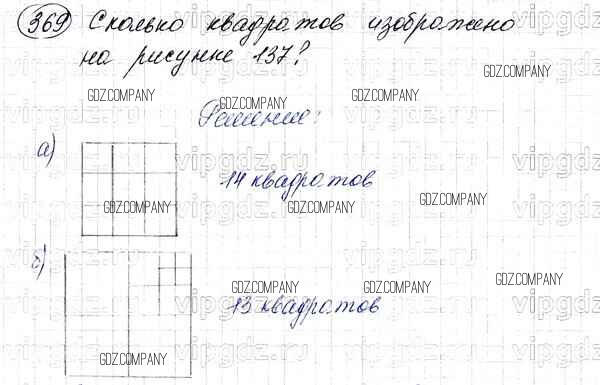 369 Сколько квадратов изображено
на рисунке 137?
GDZ.COMPANY
GDZ.COMPANY GDZ.COMPANY GDZ.COMPANY
Решение:
а)
vipgdz.ru vipgdz.ru
14 квадратов
GDZ.COMPANY GDZ.COMPANY GDZ.COMPANY
б)
GDZ.COMPANY GDZ.COMPANY GDZ.COMPANY
13 квадратов
vipgdz.ru vipgdz.ru
GDZ.COMPANY GDZ.COMPANY GDZ.COMPANY
vipgdz.ru vipgdz.ru